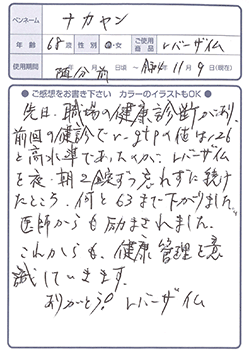 ペンネーム ナカヤン
年齢 68歳 性別 男・女 ご使用商品 レバーザイム
使用期間 随分前 月 日頃 〜 11月9日(現在)
●ご感想をお書き下さい カラーのイラストもOK●
先日、職場の健康診断があり、
前回の健診でγ-gtpの値は126
と高水準であったのが、レバーザイム
を夜・朝2錠ずつ忘れずに続け
たところ、何と63まで下がりました。
医師からも励まされました。
これからも、健康管理を意
識していきます。
ありがとう!レバーザイム